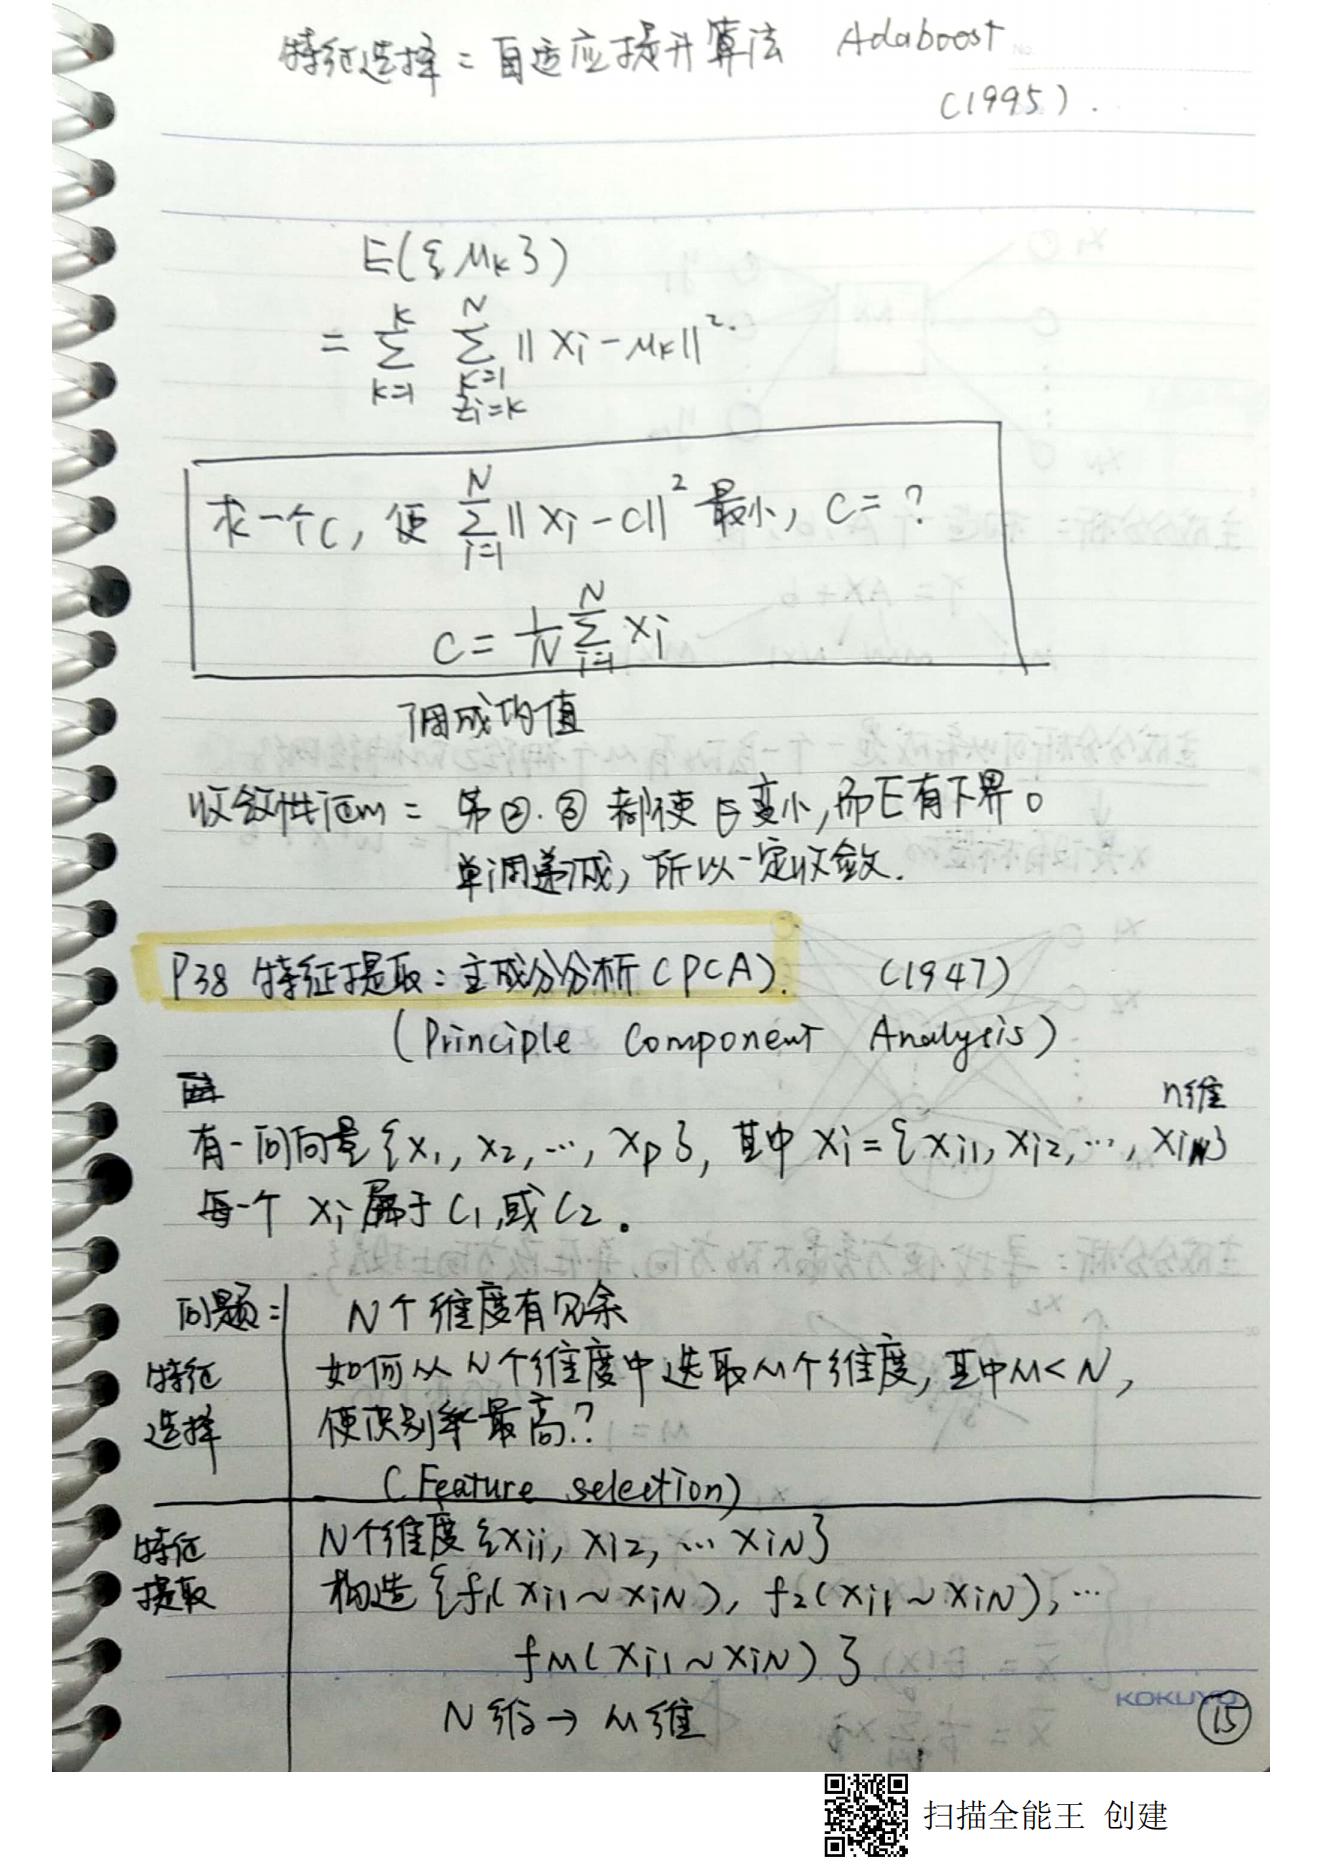 特征选择：自适应提升算法 Adaboost
(1995).
E({μk})
= Σ(k=1→K) Σ(k=1, zi=k→N) ||Xi-μk||²
求一个C, 使 Σ(i=1→N) ||Xi-C||² 最小, C=?
C = 1/N Σ(i=1→N) Xi
调成均值
收敛性证明: 第②.③都使E变小,而E有下界。
单调递减, 所以一定收敛.
P38 特征提取:主成分分析(PCA). (1947)
(Principle Component Analysis)
n维
有一问向量{X1, X2, …, Xp}, 其中 Xi={Xi1, Xi2, …, XiN}
每一个 Xi 属于C1,或C2。
问题: N个维度有冗余
特征选择 如何从N个维度中选取M个维度,其中M<N,
使识别率最高?
(Feature selection)
特征提取 N个维度{Xii, Xi2, … XiN}
构造{f1(Xi1~XiN), f2(Xi1~XiN), …
fM(Xi1~XiN)}
N维→M维
KOKUYO
15
扫描全能王 创建